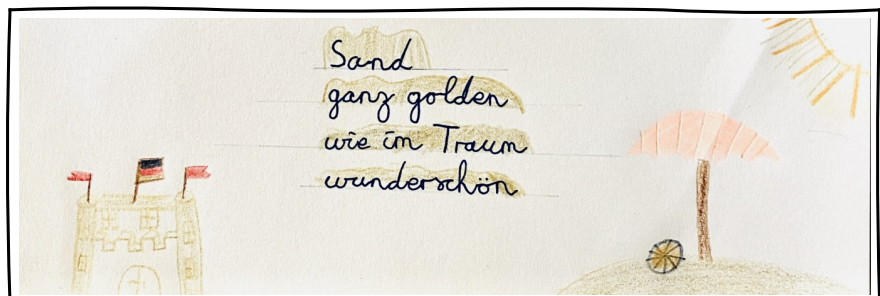 Sand
ganz golden
wie im Traum
wunderschön